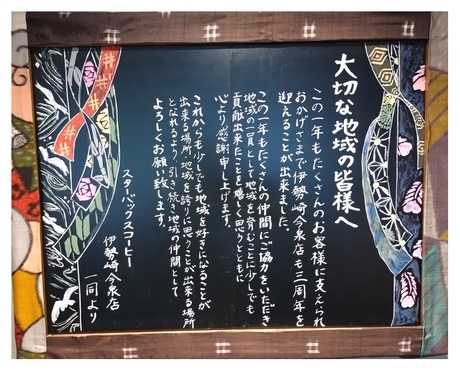 大切な地域の皆様へ
この一年もたくさんのお客様に支えられ
おかげさまで伊勢崎今泉店も三周年を
迎えることが出来ました。
この一年もたくさんの仲間にご協力をいただき
地域の一員として地域を育むことに少しでも
貢献出来たことを嬉く思うとともに
心より感謝申し上げます。
これからも少しでも地域を好きになることが
出来る場所・地域を誇りに思うことが出来る場所
となれるよう、引き続き地域の仲間として
よろしくお願い致します。
スターバックスコーヒー
伊勢崎今泉店
一同より